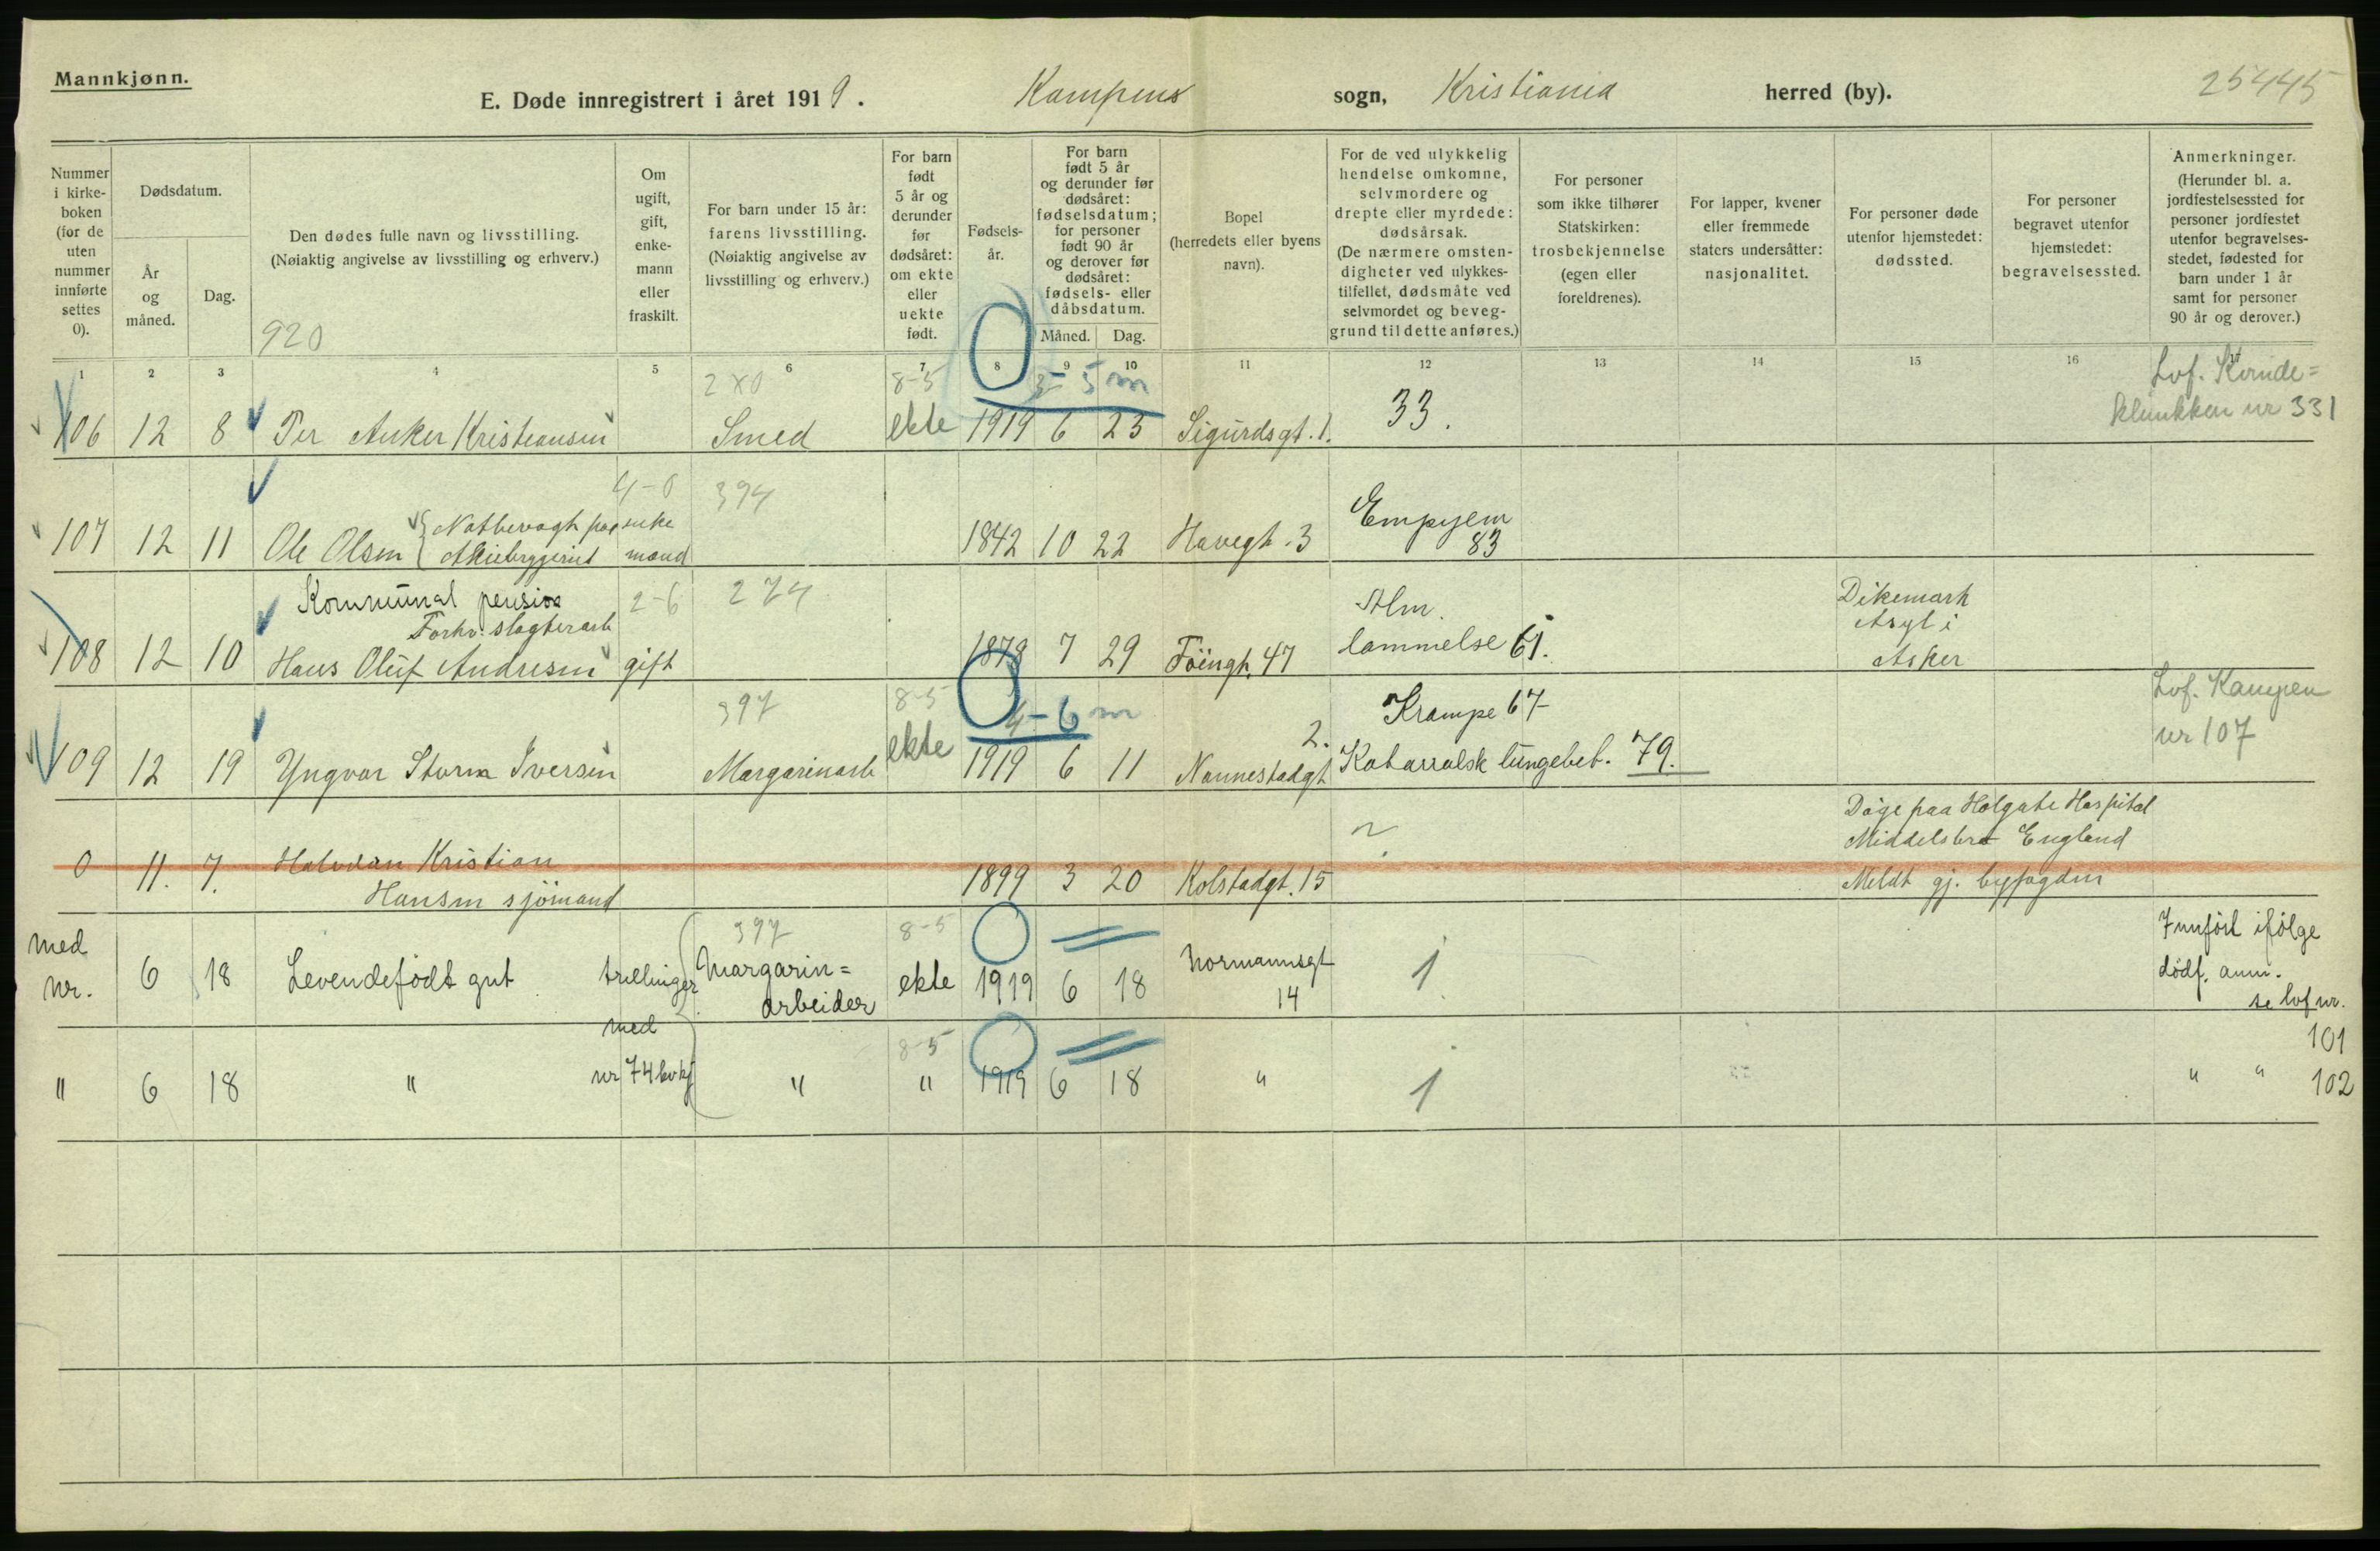 Mannkjønn.
E. Døde innregistrert i året 1919. Kampens sogn, Kristiania herred (by).
25445
Nummer i kirke-boken (for de uten nummer innførte settes 0).
Dødsdatum.
År og måned.
Dag.
Den dødes fulle navn og livsstilling.
(Nøiaktig angivelse av livsstilling og erhverv.)
920
Om ugift, gift, enke-mann eller fraskilt.
For barn under 15 år: farens livsstilling.
(Nøiaktig angivelse av livsstilling og erhverv.)
For barn født 5 år og derunder før dødsåret: om ekte eller uekte født.
Fødsels-år.
For barn født 5 år og derunder før dødsåret: fødselsdatum; for personer født 90 år og derover før dødsåret: fødsels- eller dåbsdatum.
Måned. Dag.
Bopel
(herredets eller byens navn).
For de ved ulykkelig hendelse omkomne, selvmordere og drepte eller myrdede: dødsårsak.
(De nærmere omsten-digheter ved ulykkes-tilfellet, dødsmåte ved selvmordet og beveg-grund til dette anføres.)
For personer som ikke tilhører Statskirken: trosbekjennelse (egen eller foreldrenes).
For lapper, kvener eller fremmede staters undersåtter: nasjonalitet.
For personer døde utenfor hjemstedet: dødssted.
For personer begravet utenfor hjemstedet: begravelsessted.
Anmerkninger.
(Herunder bl. a. jordfestelsessted for personer jordfestet utenfor begravelses-stedet, fødested for barn under 1 år samt for personer 90 år og derover.)
1 2 3 4 5 6 7 8 9 10 11 12 13 14 15 16
280 8-5 5 m Lvf. Kvinde=
klinikken nr 331
106 12 8 Per Anker Kristiansen Smed ekte 1919 6 23 Sigurdsgt. 1. 33.
4-0 394
107 12 11 Ole Olsen { Natbevagt paa Aktiebryggeriet enkemand 1842 10 22 Havegt. 3 Empyem 83
Kommunal pension 2-6 274
Forhv. slagterarb
108 12 10 Hans Oluf Andresen gift 1879 7 29 Töiengt. 47 Alm. lammelse 61. Dikemark Asyl i Asker
397 8-5 4-6 m Krampe 67 Lvf. Kampen nr 107
109 12 19 Yngvar Storm Iversen Margarinarb ekte 1919 6 11 Nannestadgt 2. Katarralsk lungebet. 79.
0 11. 7. Halvdan Kristian
Hansen sjömand 1899 3 20 Kolstadgt. 15 Döde paa Holgate Hospital
Middelsbro England
Meldt gj. byfogden
397 8-5
med nr. 6 18 Levendefödt gut trillinger Margarin=arbeider ekte 1919 6 18 Normannsgt 14 1 Innfört ifölge dödf. anm. se lvf nr. 101
med nr 74 kvkj
8-5
" 6 18 " " " 1919 6 18 " 1 " " 102